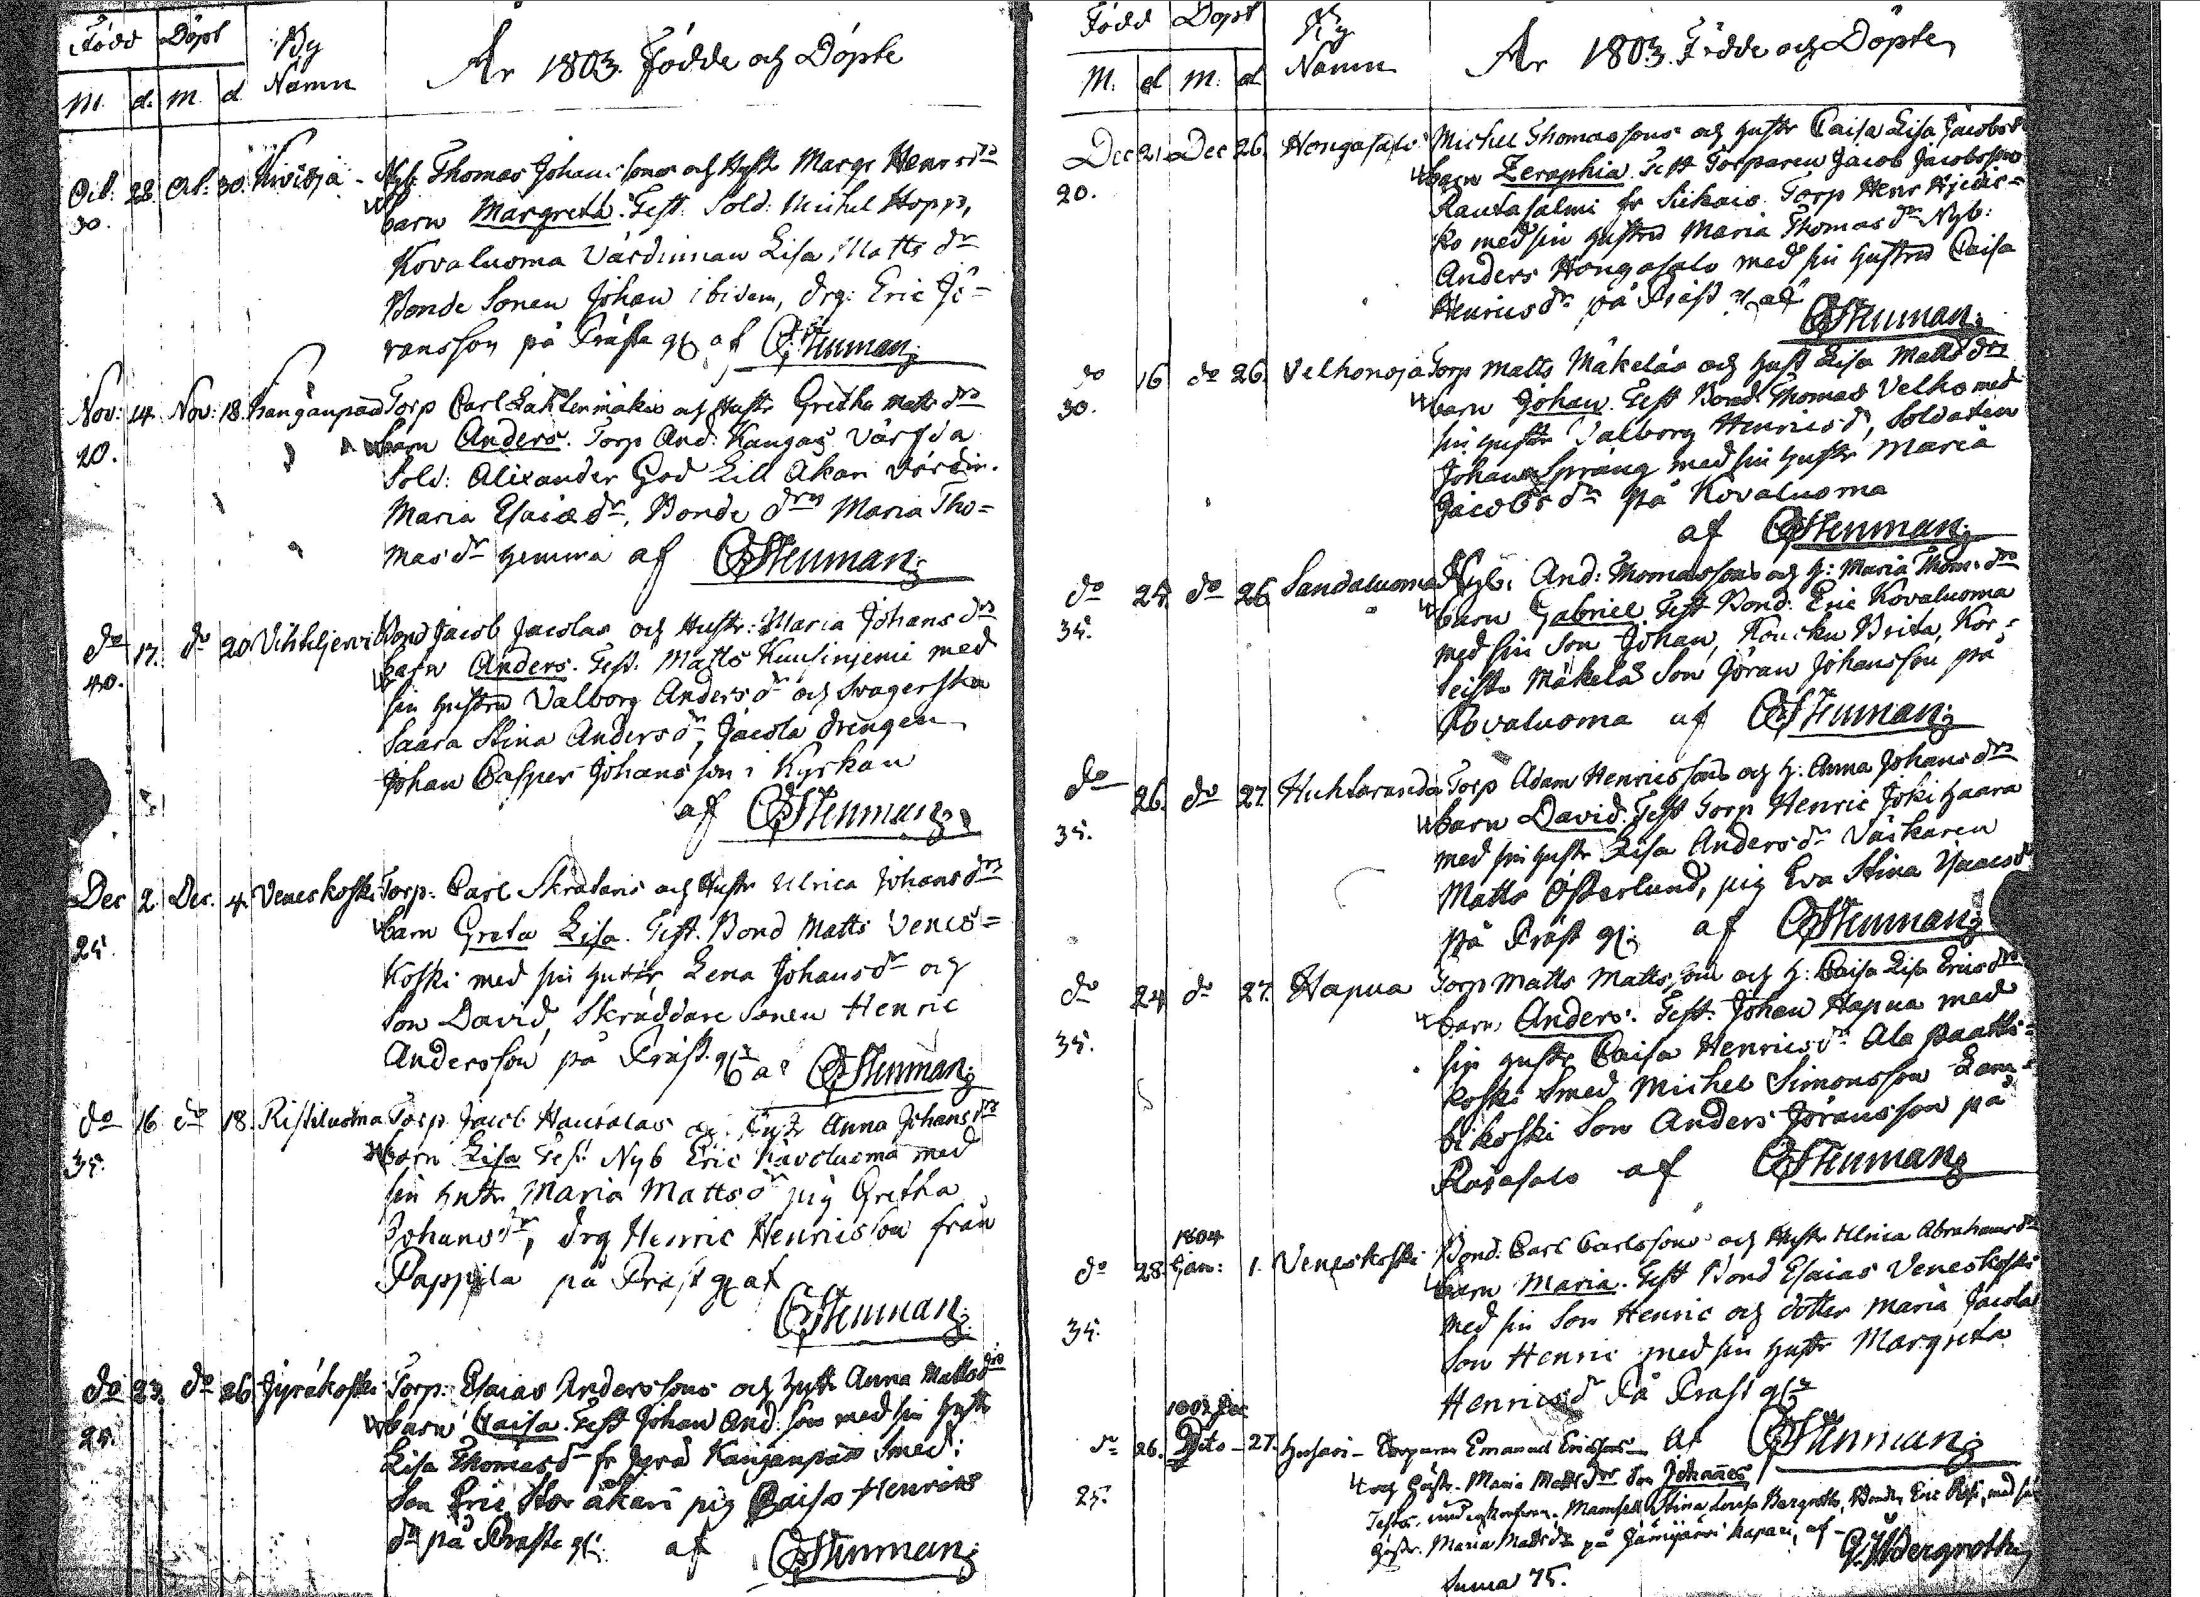 Född Döpt By Namn År 1803. Födde och Döpte
M. d. M. d
Oct. 28. Oct: 30. Kivioja - Nyb. Thomas Johanssons och Hust Margr Henrsdrs
30. barn Margreta. Test: Sold: Michel Hopp,
Kovaluoma Värdinnan Lisa Matts dr
Bonde Sonen Johan ibidem, drg: Eric Jö=
ransson på Präste g: af CStenman
Nov: 14. Nov: 18. Kangänpää Torp Carl Lähtenmäkis och Hustr Gretha Matts drs
20. barn Anders. Torp And: Kangas
Sold: Alixander God Lill Akari värdin.
Maria Esaiædr, Bonde drn Maria Tho=
mas dr hemma af CStenman
do 17. do 20 Vihteljervi Bond Jacob Jacolas och Hustr: Maria Johans drs
40. barn Anders. Test. Matts Kuusinjemi med
sin hustru Valborg Anders dr och Svagerska
Saara Stina Anders dr, Jacola drengen
Johan Casper Johansson i Kyrkan
af CStenman
Dec 2. Dec. 4. Veneskoski Torp. Carl Skrätaris och Hustr Ulrica Johans drs
25. barn Greta Lisa. Test. Bond Matts Venes=
koski med sin hustr Lena Johans dr och
Son David, Skräddare Sonen Henric
Andersson på Präst. g: af CStenman
do 16 do 18. Ristiluoma Torp Jacob Hautalas och Hustr Anna Johans drs
35. barn Lisa Test: Nyb Eric Kavoluoma med
sin hustr Maria Matts dr pig Gretha
Johans dr, drg Henric Henricsson från
Pappila på Präst g: af
CStenman
do 23. do 26 Jyräkoski Torp: Esaias Anderssons och hustr Anna Matts drs
25. barn Caisa. Test Johan And: son med sin hustr
Lisa Thomas dr fr Jyrä Kangänpää Smed:
Son Eric Stor åkari pig Caisa Henrics
dr på Präste g: af CStenman
Född Döpt By Namn År 1803. Födde och Döpte
M. d M: d
Dec 21. Dec 26. Hongasalo Michel Thomassons och hustr Caisa Lisa Jacobs
20. barn Zeraphia. Test Torparen Jacob Jacobsson
Rautasalmi fr Siikais Torp Henr
ko med sin hustru Maria Thomas dr Nyb:
Anders Hongasalo med sin hustru Caisa
Henrics dr på Präst g: af
CStenman
do 16 do 26. Velhonoja Torp Matts Mäkeläs och hust Lisa Matts drs
30. barn Johan. Test Bond Thomas Velho med
sin hustr Valborg Henrics d, Soldaten
Johan Spräng med sin hustr Maria
Jacobs dr på Kovaluoma
af CStenman
do 24. do 26 Sandaluoma Nyb. And: Thomassons och h: Maria Thom: drs
35. barn Gabriel. Test Bond: Eric Kovaluoma
med sin Son Johan, Brita, Kor=
teisto Mäkelä Son Jöran Johansson på
Kovaluoma af CStenman
do 26. do 27. Huhtaranda Torp Adam Henricssons och h: Anna Johans drs
35. barn David. Test Torp Henric Jokihaara
med sin hustr Lisa Anders dr Väskaren
Matts Österlund, pig Eva Stina Isaacs d
på Präst g: af CStenman
do 24 do 27. Hapua Torp Matts Mattssons och h: Caisa Lisa Erics drs
35. barn Anders. Test: Johan Hapua med
sin hustr Caisa Henrics dr Ala paatts=
koski Smed Michel Simonsson Lam=
bikoski Son Anders Jöransson på
Röyäsalo af CStenman
1804
do 28. Jan: 1. Veneskoski Bond: Carl Carlssons och Hustr Ulrica Abrahams drs
barn Maria. Test Bond Esaias Veneskoski
35. med sin Son Henric och dotter Maria Jacola
Son Henric med sin hustr Margreta
Henrics dr På Präst g:
af CStenman
1803 Dec
do 26. Dito - 27. Husari - Torparen Emanuel Ericssons
25. och Hustr. Maria Matts drs Son Johannes
Testes. Mamsell Stina Lovisa Bergroth, Bonden Eric Rösi, med sin
Hustr. Maria Matts dr på Jämijärvi Kapell, af
Bergroth
Suma 75.